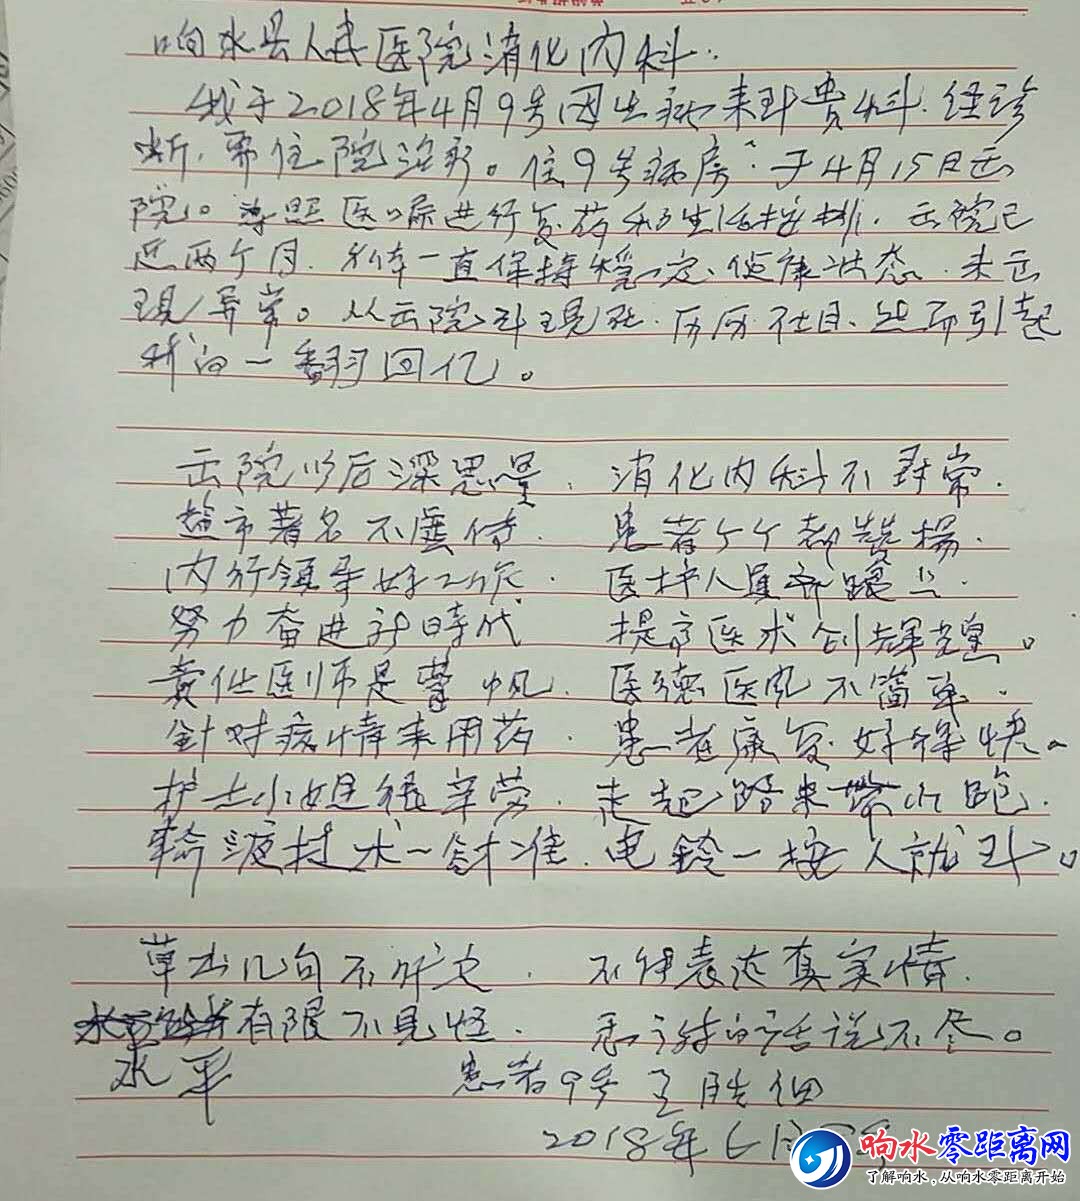 响水县人民医院消化内科.
我于2018年4月9号因生病来到贵科.经诊
断,需住院治疗。住9号病房.于4月15日出
院。遵照医嘱进行复药和生活按排,出院已
近两个月.身体一直保持稳定、健康状态.未出
现异常。从出院到现在.历历在目、从而引起
我的一翻回忆。
出院以后深思量. 消化内科不寻常.
盐市著名不虚传. 患者个个都赞扬.
内行领导好工作. 医护人员齐跟上.
努力奋进新时代 提高医术创辉煌。
医师是 帆. 医德医风不简单.
针对病情来用药. 患者康复好得快。
护士小姐很辛劳. 走起路来带小跑.
输液技术一针准.电铃一按人就到。
草出几句不成文. 不能表达真实情.
有限不见怪. 感谢的话说不尽。
水平 患者9号 王胜
2018年6月
响水零距离网
了解响水,从响水零距离开始